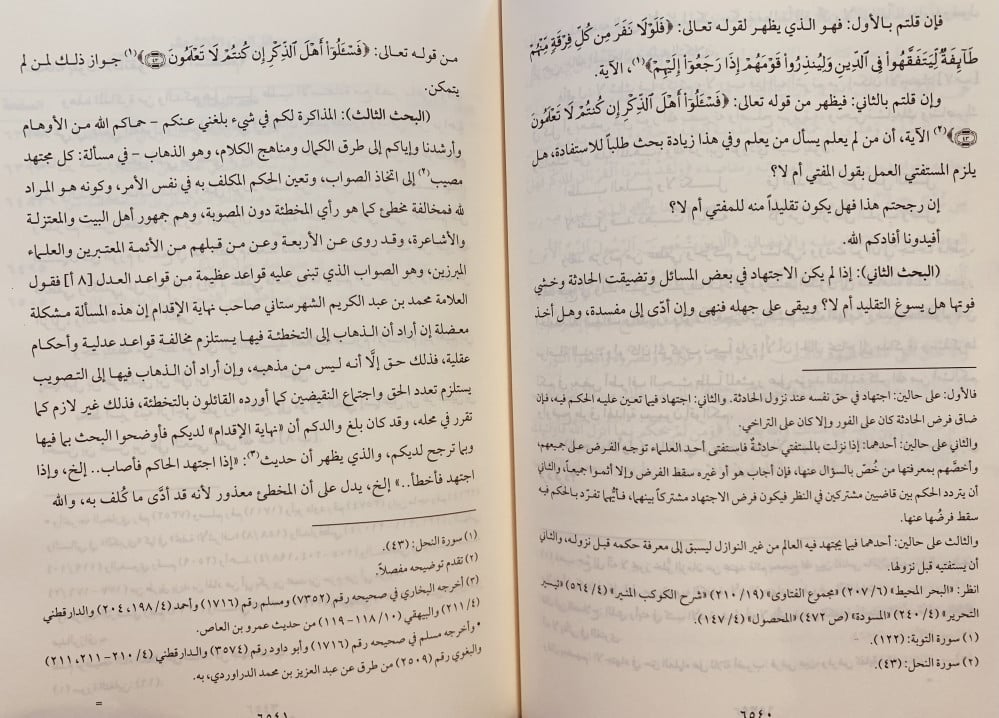 فإن قلتم بالأول: فهو الذي يظهر لقوله تعالى: ﴿فَلَوْلَا نَفَرَ مِن كُلِّ فِرْقَةٍ مِّنْهُمْ
طَآئِفَةٌ لِّيَتَفَقَّهُوا۟ فِى ٱلدِّينِ وَلِيُنذِرُوا۟ قَوْمَهُمْ إِذَا رَجَعُوٓا۟ إِلَيْهِمْ﴾(١)، الآية.
وإن قلتم بالثاني: فيظهر من قوله تعالى: ﴿فَسْـَٔلُوٓا۟ أَهْلَ ٱلذِّكْرِ إِن كُنتُمْ لَا تَعْلَمُونَ
﴿٤٣﴾﴾(٢) الآية، أن من لم يعلم يسأل من يعلم وفي هذا زيادة بحث طلباً للاستفادة، هل
يلزم المستفتي العمل بقول المفتي أم لا؟
إن رجحتم هذا فهل يكون تقليداً منه للمفتي أم لا؟
أفيدونا أفادكم الله.
(البحث الثاني): إذا لم يكن الاجتهاد في بعض المسائل وتضيقت الحادثة وخشي
فوتها هل يسوغ التقليد أم لا؟ ويبقى على جهله فنهى وإن أدّى إلى مفسدة، وهل أخذ
فالأول: على حالين: اجتهاد في حق نفسه عند نزول الحادثة. والثاني: اجتهاد فيما تعين عليه الحكم فيه، فإن
ضاق فرض الحادثة كان على الفور وإلا كان على التراخي.
والثاني على حالين: أحدهما: إذا نزلت بالمستفتي حادثةٌ فاستفتى أحد العلماء توجه الفرض على جميعهم،
وأخصَّهم بمعرفتها من خُصّ بالسؤال عنها، فإن أجاب هو أو غيره سقط الفرض وإلا أثموا جميعاً، والثاني
أن يتردد الحكم بين قاضيين مشتركين في النظر فيكون فرض الاجتهاد مشتركاً بينهما، فأيُّهما تفرّد بالحكم فيه
سقط فرضُها عنها.
والثالث على حالين: أحدهما فيما يجتهد فيه العالم من غير النوازل ليسبق إلى معرفة حكمه قبل نزوله، والثاني
أن يستفتيه قبل نزولها.
انظر: «البحر المحيط» (٢٠٧/٦) «مجموع الفتاوى» (٢١٠/١٩) «شرح الكوكب المنير» (٥٦٤/٤) «تيسير
التحرير» (٢٤٠/٤) «المسودة» (ص ٤٧٢) «المحصول» (١٤٧/٤).
(١) سورة التوبة: (١٢٢).
(٢) سورة النحل: (٤٣).
٦٥٤٠
من قوله تعالى: ﴿فَسْـَٔلُوٓا۟ أَهْلَ ٱلذِّكْرِ إِن كُنتُمْ لَا تَعْلَمُونَ ﴿٤٣﴾﴾(١) جواز ذلك لمن لم
يتمكن.
(البحث الثالث): المذاكرة لكم في شيء بلغني عنكم - حماكم الله من الأوهام
وأرشدنا وإياكم إلى طرق الكمال ومناهج الكلام، وهو الذهاب - في مسألة: كل مجتهد
مصيب(٢) إلى اتخاذ الصواب، وتعين الحكم المكلف به في نفس الأمر، وكونه هو المراد
لله فمخالفة مخطئ كما هو رأي المخطئة دون المصوبة، وهم جمهور أهل البيت والمعتزلة
والأشاعرة، وقد روى عن الأربعة وعن من قبلهم من الأئمة المعتبرين والعلماء
المبرزين، وهو الصواب الذي تبنى عليه قواعد عظيمة من قواعد العدل [٨ أ] فقول
العلامة محمد بن عبد الكريم الشهرستاني صاحب نهاية الإقدام إن هذه المسألة مشكلة
معضلة إن أراد أن الذهاب إلى التخطئة فيها يستلزم مخالفة قواعد عدلية وأحكام
عقلية، فذلك حق إلَّا أنه ليس من مذهبه، وإن أراد أن الذهاب فيها إلى التصويب
يستلزم تعدد الحق واجتماع النقيضين كما أورده القائلون بالتخطئة، فذلك غير لازم كما
تقرر في محله، وقد كان بلغ والدكم أن «نهاية الإقدام» لديكم فأوضحوا البحث بما فيها
وبما ترجح لديكم، والذي يظهر أن حديث(٣): «إذا اجتهد الحاكم فأصاب.. إلخ، وإذا
اجتهد فأخطأ..» إلخ، يدل على أن المخطئ معذور لأنه قد أدَّى ما كُلف به، والله
(١) سورة النحل: (٤٣).
(٢) تقدم توضيحه مفصلاً.
(٣) أخرجه البخاري في صحيحه رقم (٧٣٥٢) ومسلم رقم (١٧١٦) وأحمد (١٩٨/٤، ٢٠٤) والدارقطني
(٢١١/٤) والبيهقي (١١٨/١٠-١١٩) من حديث عمرو بن العاص.
• وأخرجه مسلم في صحيحه رقم (١٧١٦) وأبو داود رقم (٣٥٧٤) والدارقطني (٢١٠/٤-٢١١، ٢١١)
والبغوي رقم (٢٥٠٩) من طرق عن عبد العزيز بن محمد الدراوردي، به.
=
٦٥٤١